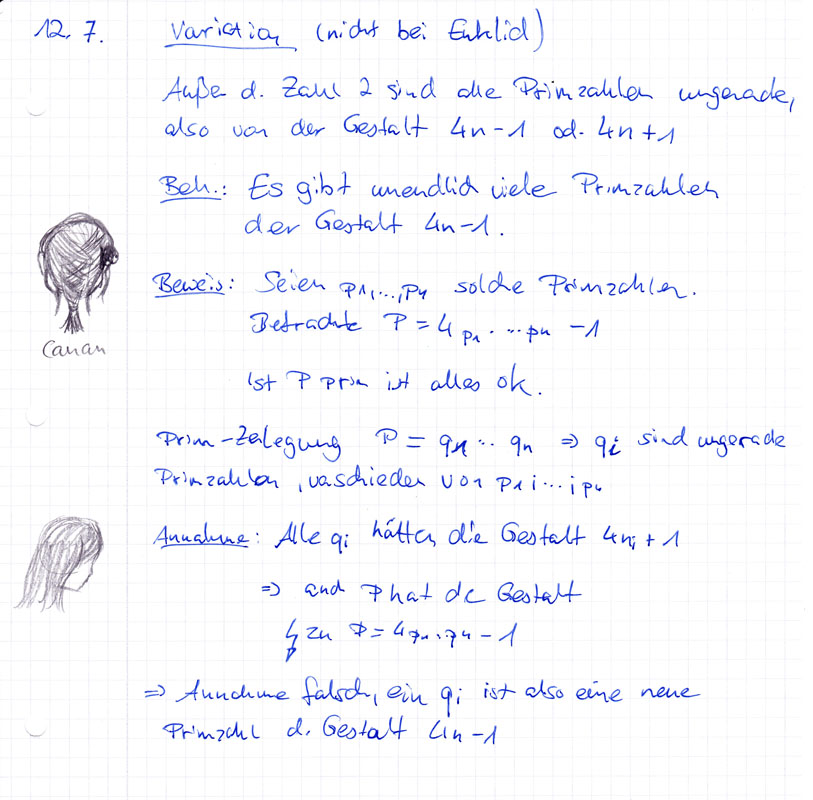 12. 7. Variation (nicht bei Euklid)
Auße d. Zahl 2 sind alle Primzahlen ungerade,
also von der Gestalt 4n-1 od. 4n+1
Beh.: Es gibt unendlich viele Primzahlen
der Gestalt 4n-1.
Beweis: Seien p1,...,pn solche Primzahlen.
Betrachte P = 4 p1 · ... pn -1
Canan
Ist P prim ist alles ok.
Prim-Zerlegung P = q1 ... qn => qi sind ungerade
Primzahlen, verschieden von p1,...,pn
Annahme: Alle qi hätten die Gestalt 4ni + 1
=> auch P hat die Gestalt
↯ zu P = 4p1...pn - 1
=> Annahme falsch, ein qi ist also eine neue
Primzahl d. Gestalt 4n-1